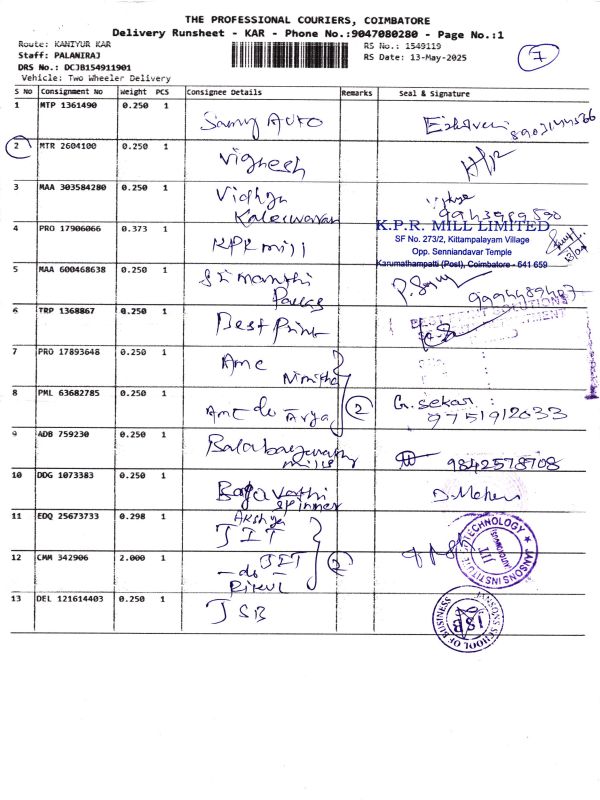 THE PROFESSIONAL COURIERS, COIMBATORE
Delivery Runsheet - KAR - Phone No.:9047080280 - Page No.:1
Route: KANIYUR KAR
Staff: PALANIRAJ
DRS No.: DCJB154911901
Vehicle: Two Wheeler Delivery
RS No.: 1549119
RS Date: 13-May-2025
7
S No Consignment No Weight PCS Consignee Details Remarks Seal & Signature
1 MTP 1361490 0.250 1 Samy Auto
2 MTR 2604100 0.250 1 Vignesh
3 MAA 303584280 0.250 1 Vidhya
Kaleswaran
4 PRO 17906066 0.373 1 KPR mill
K.P.R. MILL LIMITED
SF No. 273/2, Kittampalayam Village
Opp. Senniandavar Temple
Karumathampatti (Post), Coimbatore - 641 659
5 MAA 600468638 0.250 1 Sri
6 TRP 1368867 0.250 1 Best Print
7 PRO 17893648 0.250 1 AMC
8 PML 63682785 0.250 1 AMC do Arya 2 G. Sekar
9751912033
9 ADB 759230 0.250 1 mills 9842578708
10 DDG 1073383 0.250 1 Bagavathi
spinner
11 EDQ 25673733 0.298 1 Akshya
JIT
12 CMM 342906 2.000 1 JIT
- do -
2
JANSONS INSTITUTE OF TECHNOLOGY
13 DEL 121614403 0.250 1 JSB
JANSONS SCHOOL OF BUSINESS
JSB